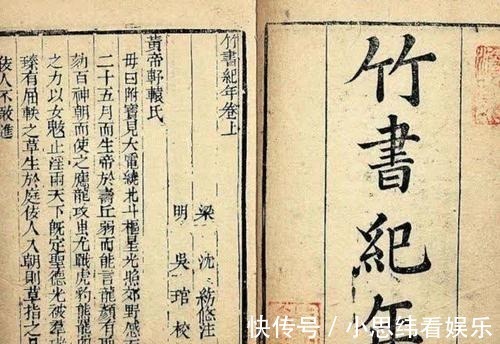 竹書紀年
竹書紀年卷上
梁 沈約注
明 吳琯校
黃帝軒轅氏
母曰附寶見大電繞北斗樞星光照郊野感而
二十五月而生帝於壽丘弱而能言龍顏有聖
劾百神朝而使之應龍攻蚩尤戰虎豹熊羆
之力以女魃止淫雨天下既定聖德光被羣瑞
臻有屈軼之草生於庭佞人入朝則草指之
佞人不敢進
快传号/小思纬看娱乐